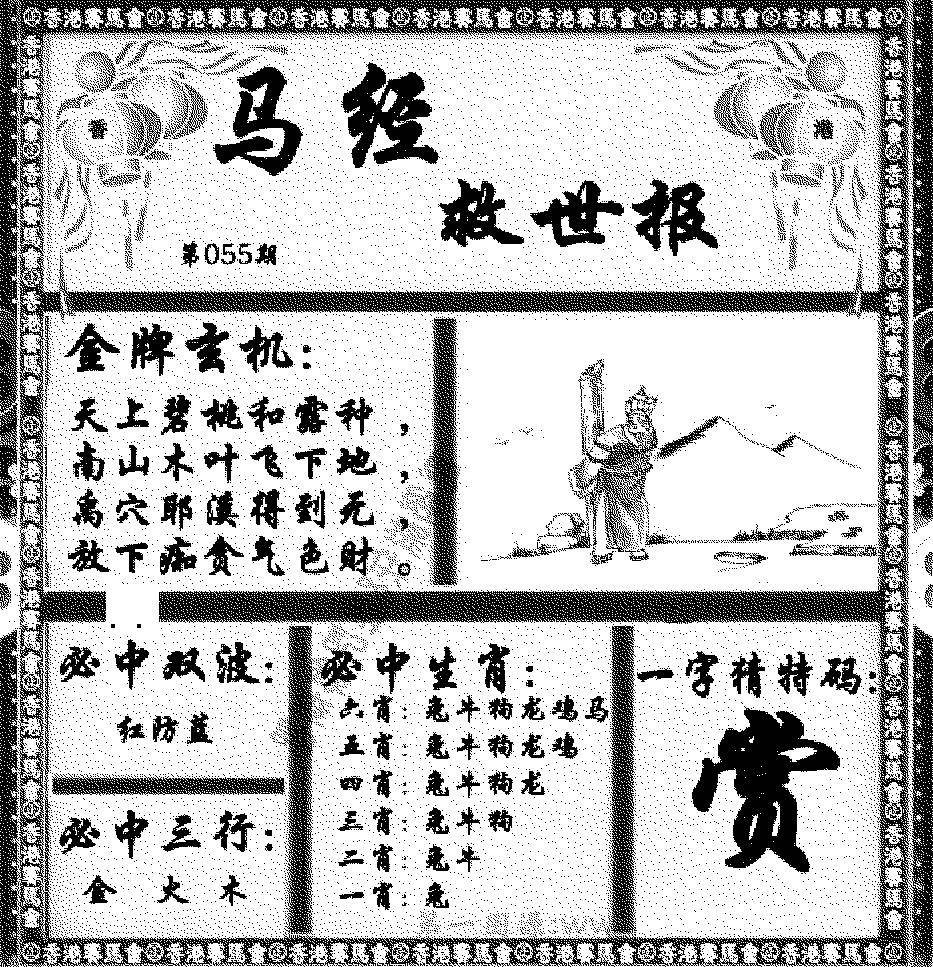 香港赛馬會香港赛馬會香港赛馬會香港赛馬會香港赛馬會香港赛馬會香港赛馬會
香
港
马经
救世报
第055期
金牌玄机：
天上碧桃和露种，
南山木叶飞下地，
禹穴耶溪得到无，
放下痴贪气色财。
必中双波：
红防蓝
必中三行：
金 火 木
必中生肖：
六肖：兔牛狗龙鸡马
五肖：兔牛狗龙鸡
四肖：兔牛狗龙
三肖：兔牛狗
二肖：兔牛
一肖：兔
一字猜特码：
赏
香港赛馬會香港赛馬會香港赛馬會香港赛馬會香港赛馬會香港赛馬會香港赛馬會